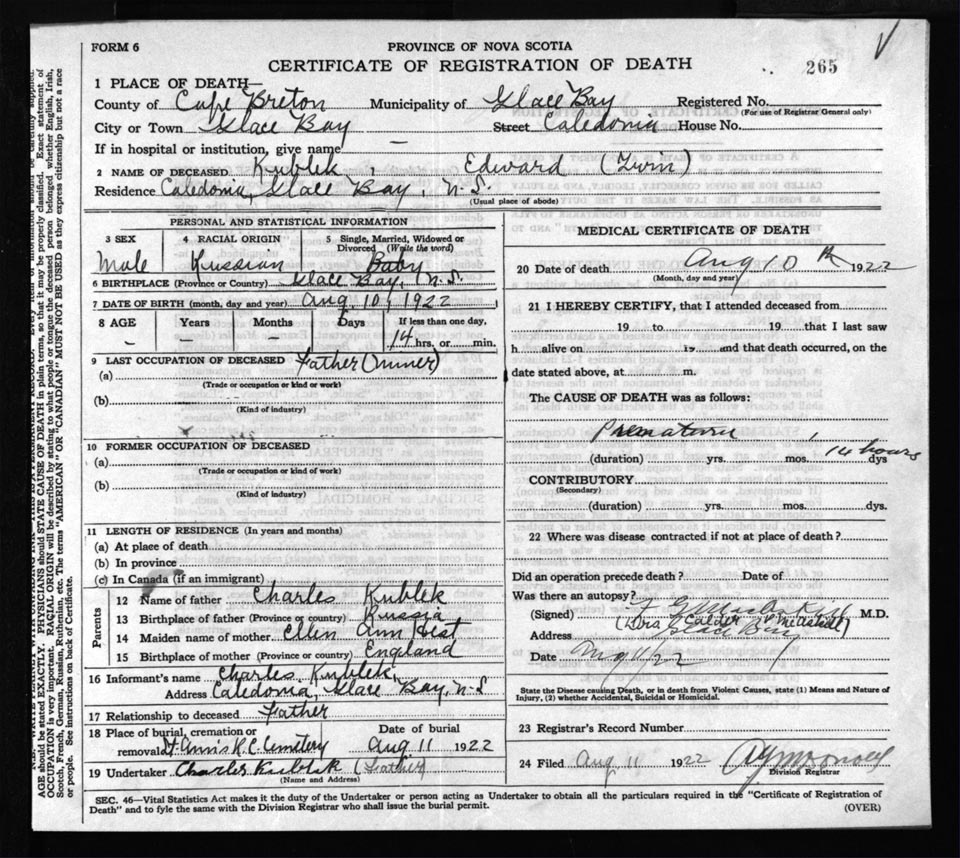 FORM 6
PROVINCE OF NOVA SCOTIA
CERTIFICATE OF REGISTRATION OF DEATH
265
1 PLACE OF DEATH—
County of Cape Breton Municipality of Glace Bay Registered No.
(For use of Registrar General only)
City or Town Glace Bay Street Caledonia House No.
If in hospital or institution, give name —
2 NAME OF DECEASED Kublek, Edward (Twin)
Residence Caledonia, Glace Bay, N.S.
(Usual place of abode)
PERSONAL AND STATISTICAL INFORMATION
3 SEX Male
4 RACIAL ORIGIN Russian
5 Single, Married, Widowed or Divorced (Write the word) Baby
6 BIRTHPLACE (Province or Country) Glace Bay, N.S.
7 DATE OF BIRTH (month, day and year) Aug 10, 1922
8 AGE Years Months Days If less than one day,
— — — 14 hrs. or min.
9 LAST OCCUPATION OF DECEASED Father (miner)
(a)
(Trade or occupation or kind or work)
(b)
(Kind of industry)
10 FORMER OCCUPATION OF DECEASED
(a)
(Trade or occupation or kind or work)
(b)
(Kind of industry)
11 LENGTH OF RESIDENCE (In years and months)
(a) At place of death
(b) In province
(c) In Canada (if an immigrant)
Parents
12 Name of father Charles Kublek
13 Birthplace of father (Province or country) Russia
14 Maiden name of mother Ellen Ann Best
15 Birthplace of mother (Province or country) England
16 Informant's name Charles Kublek,
Address Caledonia, Glace Bay, N.S.
17 Relationship to deceased Father
18 Place of burial, cremation or removal St. Ann's R.C. Cemetery Date of burial Aug 11 1922
19 Undertaker Charles Kublek (Father)
(Name and Address)
MEDICAL CERTIFICATE OF DEATH
20 Date of death Aug 10th 1922
(Month, day and year)
21 I HEREBY CERTIFY, that I attended deceased from
19 to 19 that I last saw
h alive on 19 and that death occurred, on the
date stated above, at m.
The CAUSE OF DEATH was as follows:
Premature
(duration) yrs. mos. 14 hours dys
CONTRIBUTORY
(Secondary)
(duration) yrs. mos. dys.
22 Where was disease contracted if not at place of death?
Did an operation precede death? Date of
Was there an autopsy?
(Signed) M.D.
Address Glace Bay
Date 11/22
State the Disease causing Death, or in death from Violent Causes, state (1) Means and Nature of
Injury, (2) whether Accidental, Suicidal or Homicidal.
23 Registrar's Record Number
24 Filed Aug 11 1922
Division Registrar
SEC. 46—Vital Statistics Act makes it the duty of the Undertaker or person acting as Undertaker to obtain all the particulars required in the "Certificate of Registration of
Death" and to fyle the same with the Division Registrar who shall issue the burial permit.
(OVER)
AGE should be stated EXACTLY. PHYSICIANS should STATE CAUSE OF DEATH in plain terms, so that it may be properly classified. Exact statement of
OCCUPATION is very important. RACIAL ORIGIN will be described by stating to what people or tongue the deceased person belonged whether English, Irish,
Scotch, French, German, Russian, Ruthenian, etc. The terms "AMERICAN" OR "CANADIAN" MUST NOT BE USED as they express citizenship but not a race
or people. See instructions on back of Certificate.